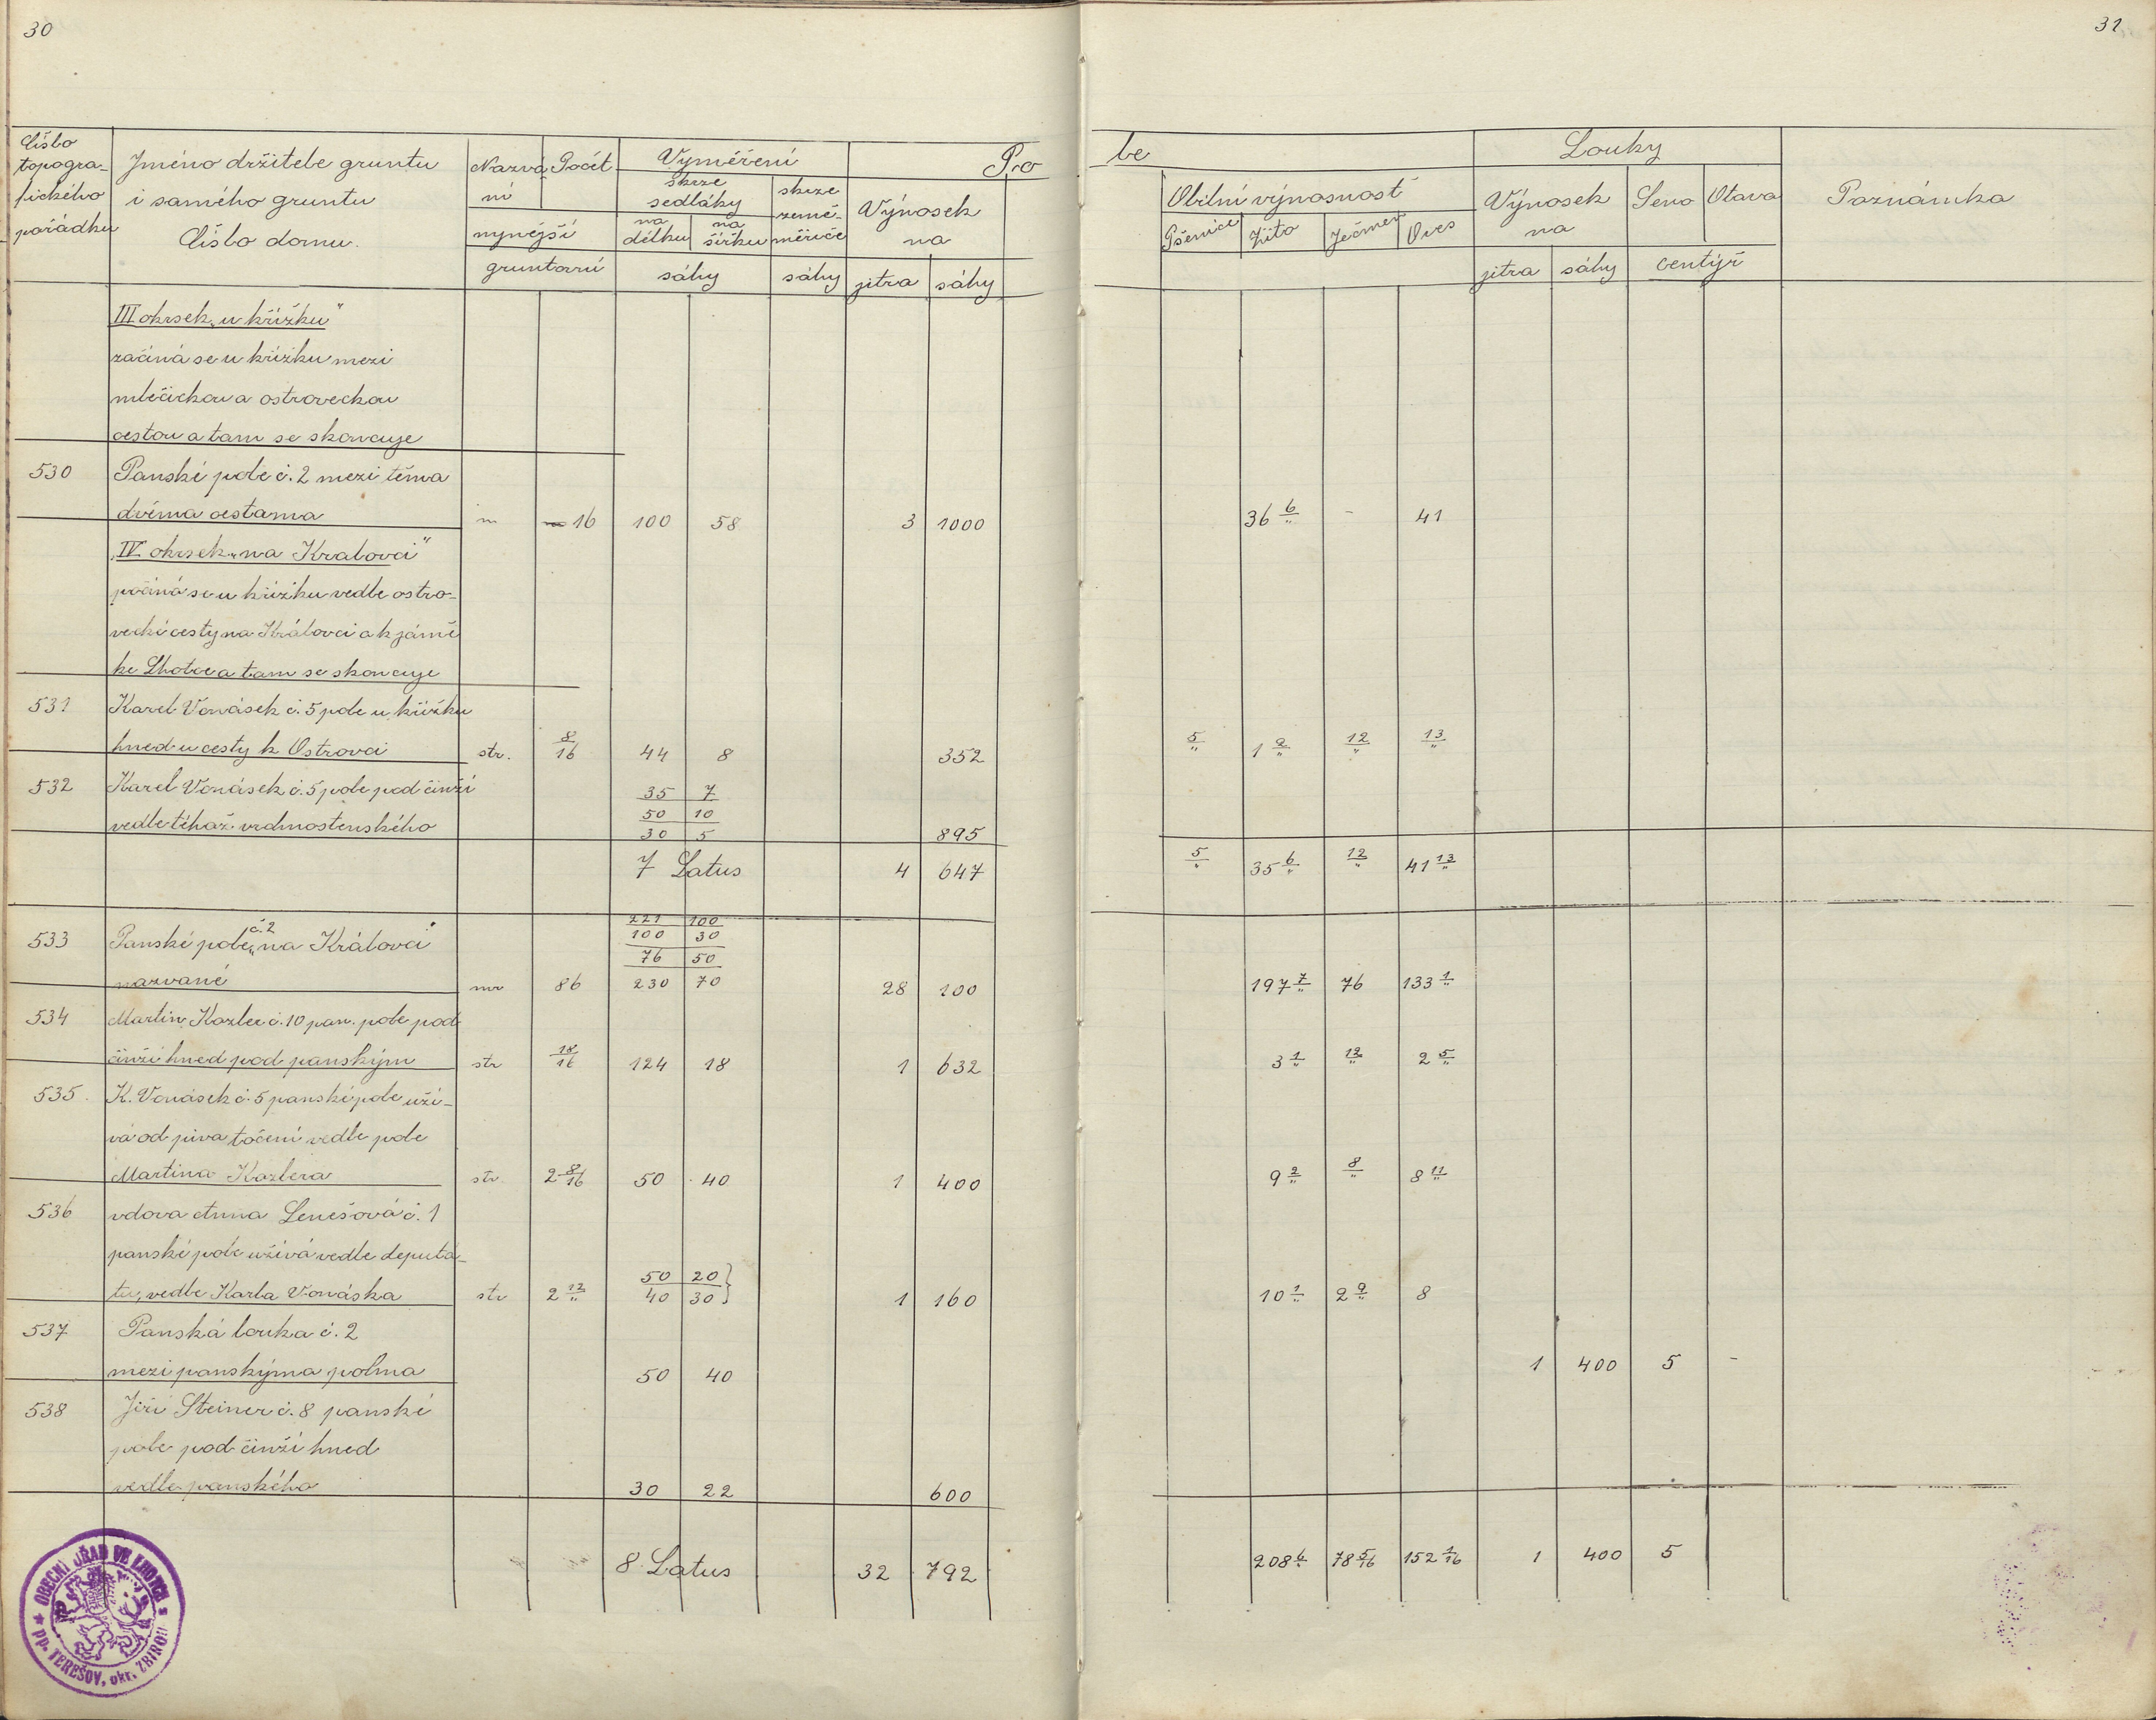 30
31
Číslo topogra- fického pořádku
Jméno držitele gruntu i samého gruntu Číslo domu.
Nazvá ní
Počet
nynější
gruntovní
Vyměření
skrze sedláky
na délku
na šířku
skrze země- měřiče
sáhy
sáhy
Pro
le
Výnosek na
jitra
sáhy
Obilní výnosnost
Pšenice
Žito
Ječmen
Oves
Louky
Výnosek na
jitra
sáhy
Seno
Otava
centýř
Poznámka
III okrsek „u křížku"
začíná se u křížku mezi
mlečickou a ostroveckou
cestou a tam se skoncuje
530 Panské pole č. 2 mezi těma
dvěma cestama m 16 100 58 3 1000 36 6/„ - 41
„IV okrsek „na Kralovci"
počíná se u křížku vedle ostro-
vecké cesty na Královci a k jámě
ke Lhotce a tam se skoncuje
531 Karel Vonásek č. 5 pole u křížku
hned u cesty k Ostrovci str. 8/16 44 8 352 5/„ 1 2/„ 12/„ 13/„
532 Karel Vonásek č. 5 pole pod činží 35 7
50 10
vedle téhož vrchnostenského 30 5 895
7 Latus 4 647 5/„ 35 6/„ 12/„ 41 13/„
221 100
533 Panské pole č. 2 „na Královci" 100 30
76 50
nazvané mr 86 230 70 28 100 197 7/„ 76 133 1/„
534 Martin Kozler č. 10 pan. pole pod
činží hned pod panským str 18/16 124 18 1 632 3 1/„ 12/„ 2 5/„
535. K. Vonásek č. 5 panské pole uží-
vá od piva točení vedle pole
Martina Kozlera str. 2 8/16 50 40 1 400 9 2/„ 8/„ 8 11/„
536 vdova Anna Lenešová č. 1
panské pole užívá vedle deputá- 50 20
tu, vedle Karla Vonáska str 2 12/„ 40 30 1 160 10 1/„ 2 9/„ 8
537 Panská louka č. 2
mezi panskýma polma 50 40 1 400 5 -
538 Jiří Steiner č. 8 panské
pole pod činží hned
vedle panského 30 22 600
8 Latus 32 792 208 6/„ 78 5/16 152 1/16 1 400 5
OBECNÍ ÚŘAD VE LHOTCE s pp. TEREŠOV, okr. ZBIROH